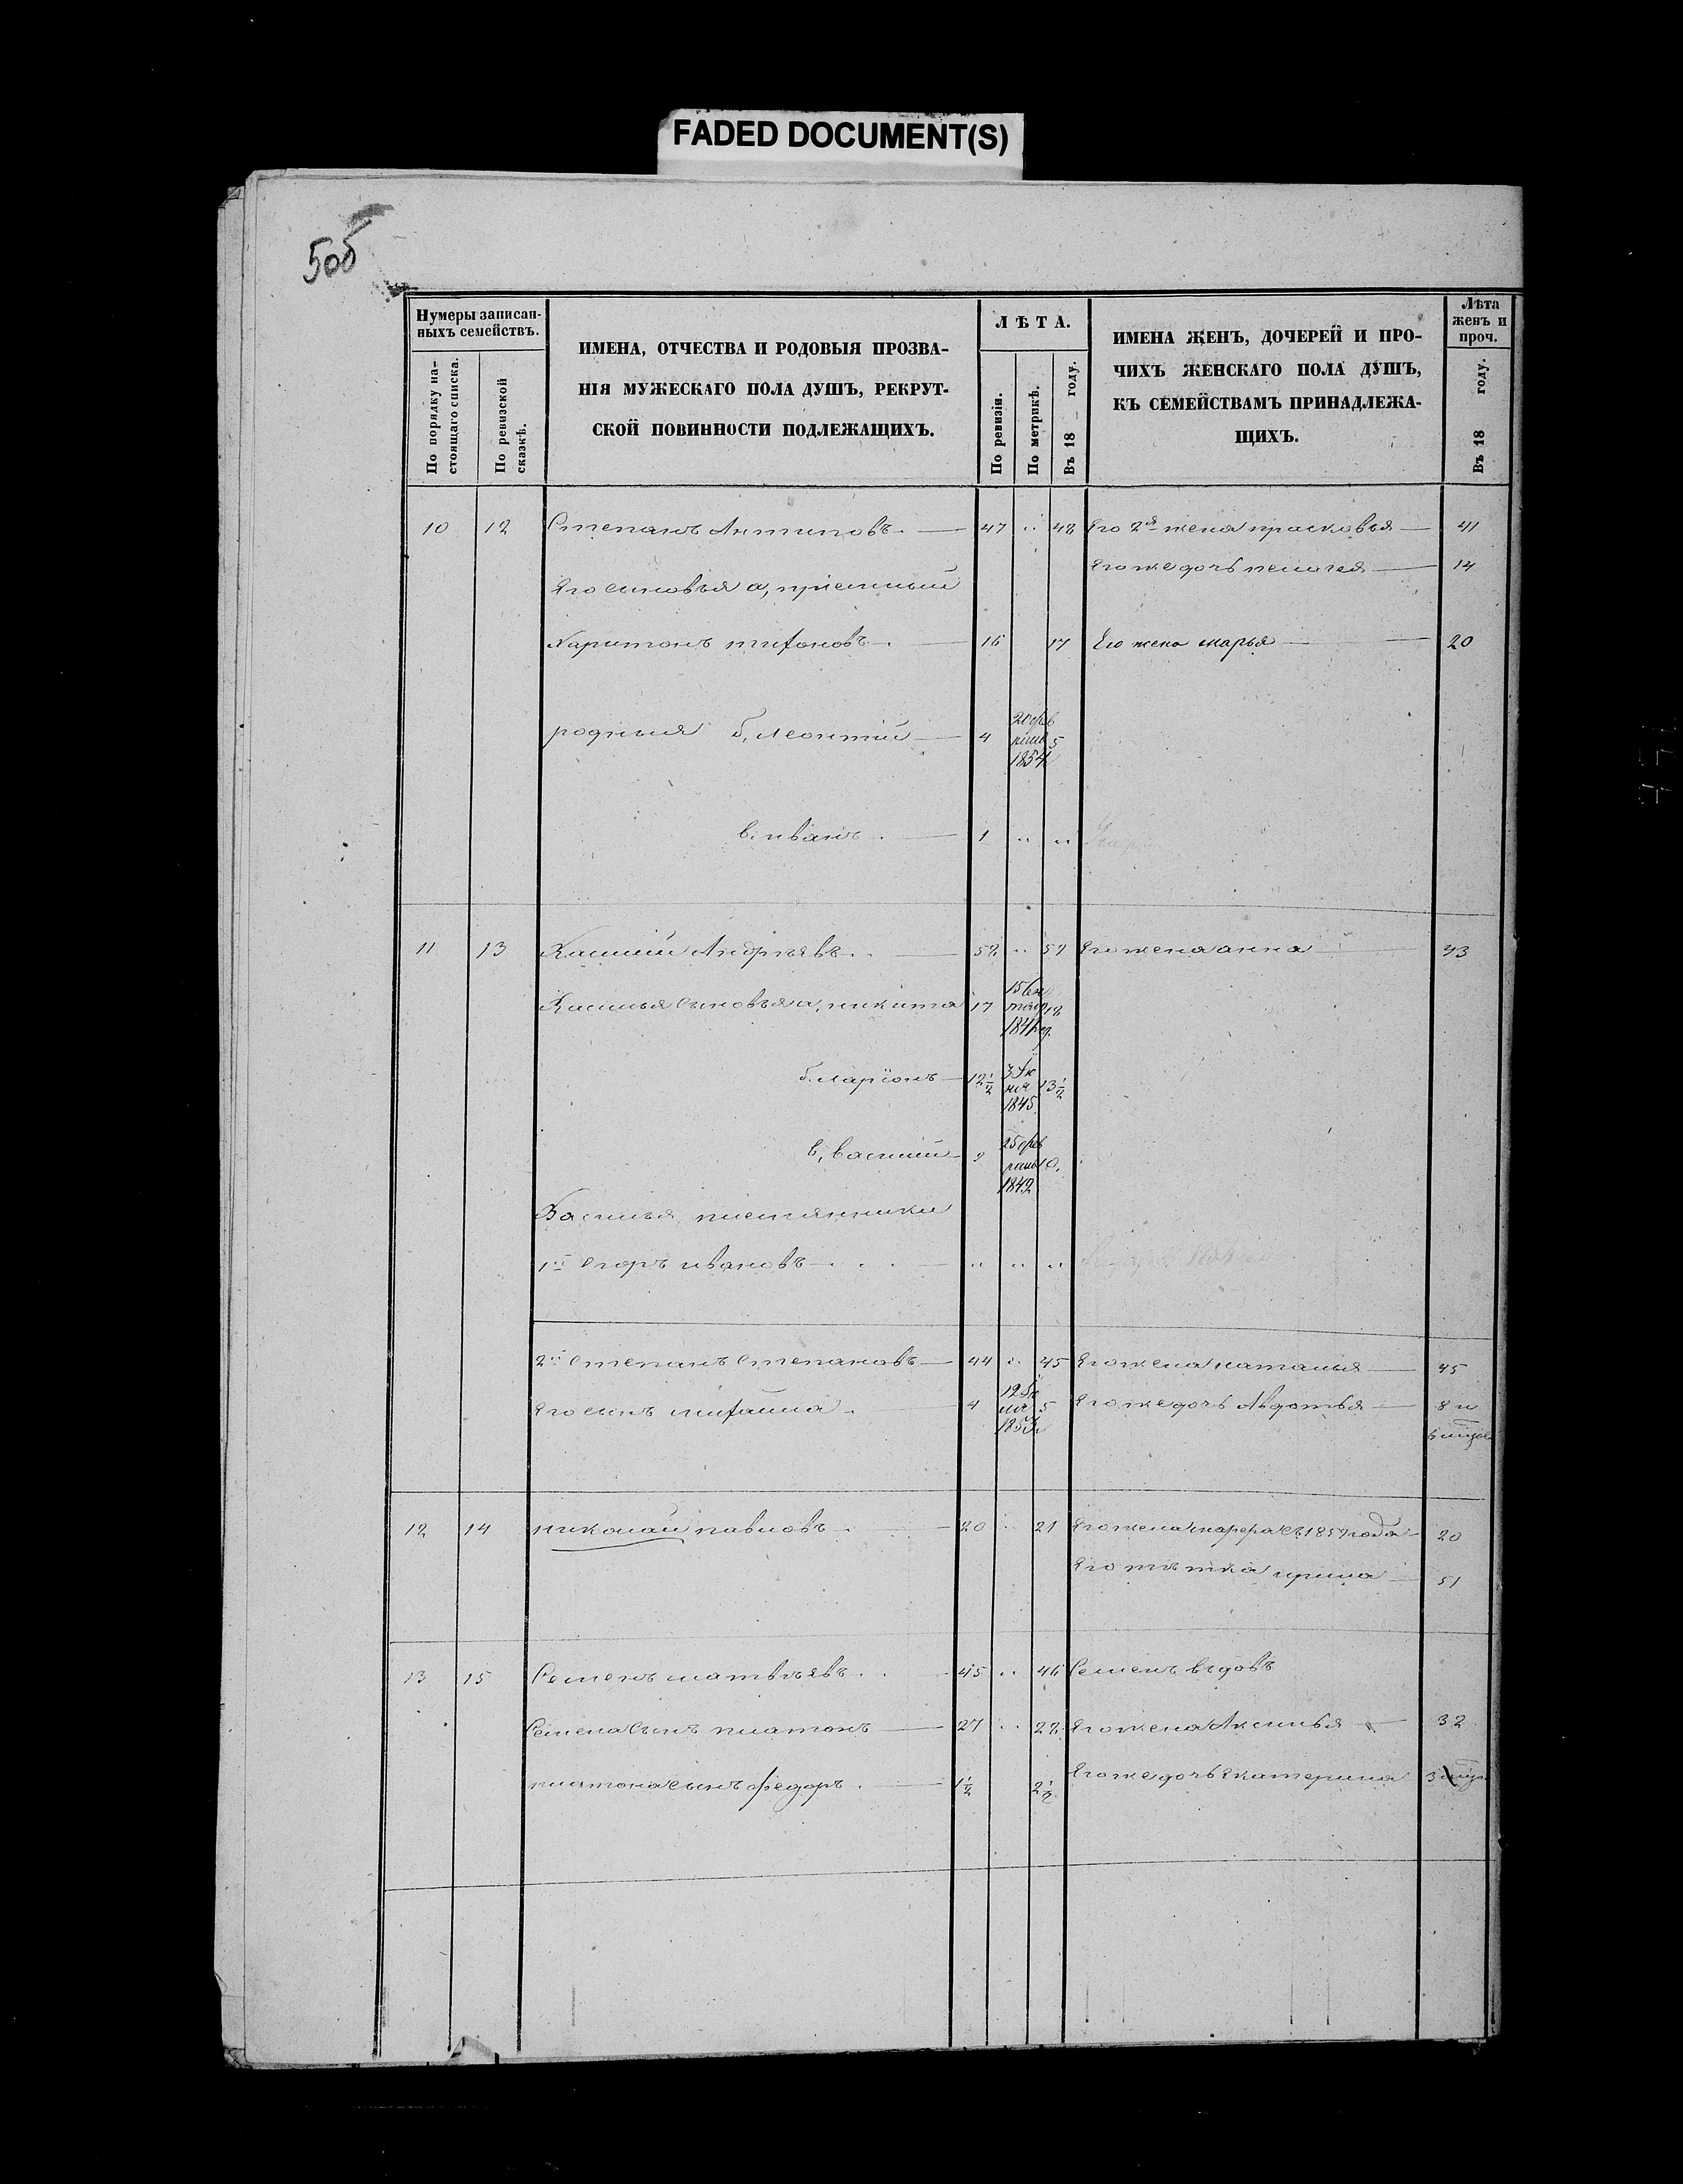 FADED DOCUMENT(S)
50б
Нумеры записан-
ныхъ семействъ.
По порядку на-
стоящаго списка.
По ревизской
сказкѣ.
ИМЕНА, ОТЧЕСТВА И РОДОВЫЯ ПРОЗВА-
НІЯ МУЖЕСКАГО ПОЛА ДУШЪ, РЕКРУТ-
СКОЙ ПОВИННОСТИ ПОДЛЕЖАЩИХЪ.
ЛѢТА.
По ревизіи.
По метрикѣ.
Въ 18 году.
ИМЕНА ЖЕНЪ, ДОЧЕРЕЙ И ПРО-
ЧИХЪ ЖЕНСКАГО ПОЛА ДУШЪ,
КЪ СЕМЕЙСТВАМЪ ПРИНАДЛЕЖА-
ЩИХЪ.
Лѣта
женъ и
проч.
Въ 18 году.
10 12 Степанъ Антиповъ 47 48 Его 2я жена прасковья 41
Егожедочь пелагея 14
Его сыновья а, приемный
Харитонъ тихоновъ 16 17 Его жена марья 20
родныя б, леонтий 4 5
1854
в. иванъ 1
11 13 Андреявъ 58 59 Егожена анна 43
сыновья а, никита 17 18
б. ларионъ 12 1/2 13 1/2
1845
в, василий 9 10.
племянники
1й Егоръ ивановъ
2й Степанъ Степановъ 44 45 Егожена наталья 45
Егосынъ михайла 4 5 Егожедочь Авдотья 8 и
12 14 николай павловъ 20 21 Егожена 20
Его тетка ирина 51
13 15 Семенъ матвеявъ 45 46 Семенъ вдовъ
Семена Сынъ платонъ 27 28 Егожена Аксинья 32
платона сынъ федоръ 1 1/2 2 1/2 Егожедочь Екатерина 3